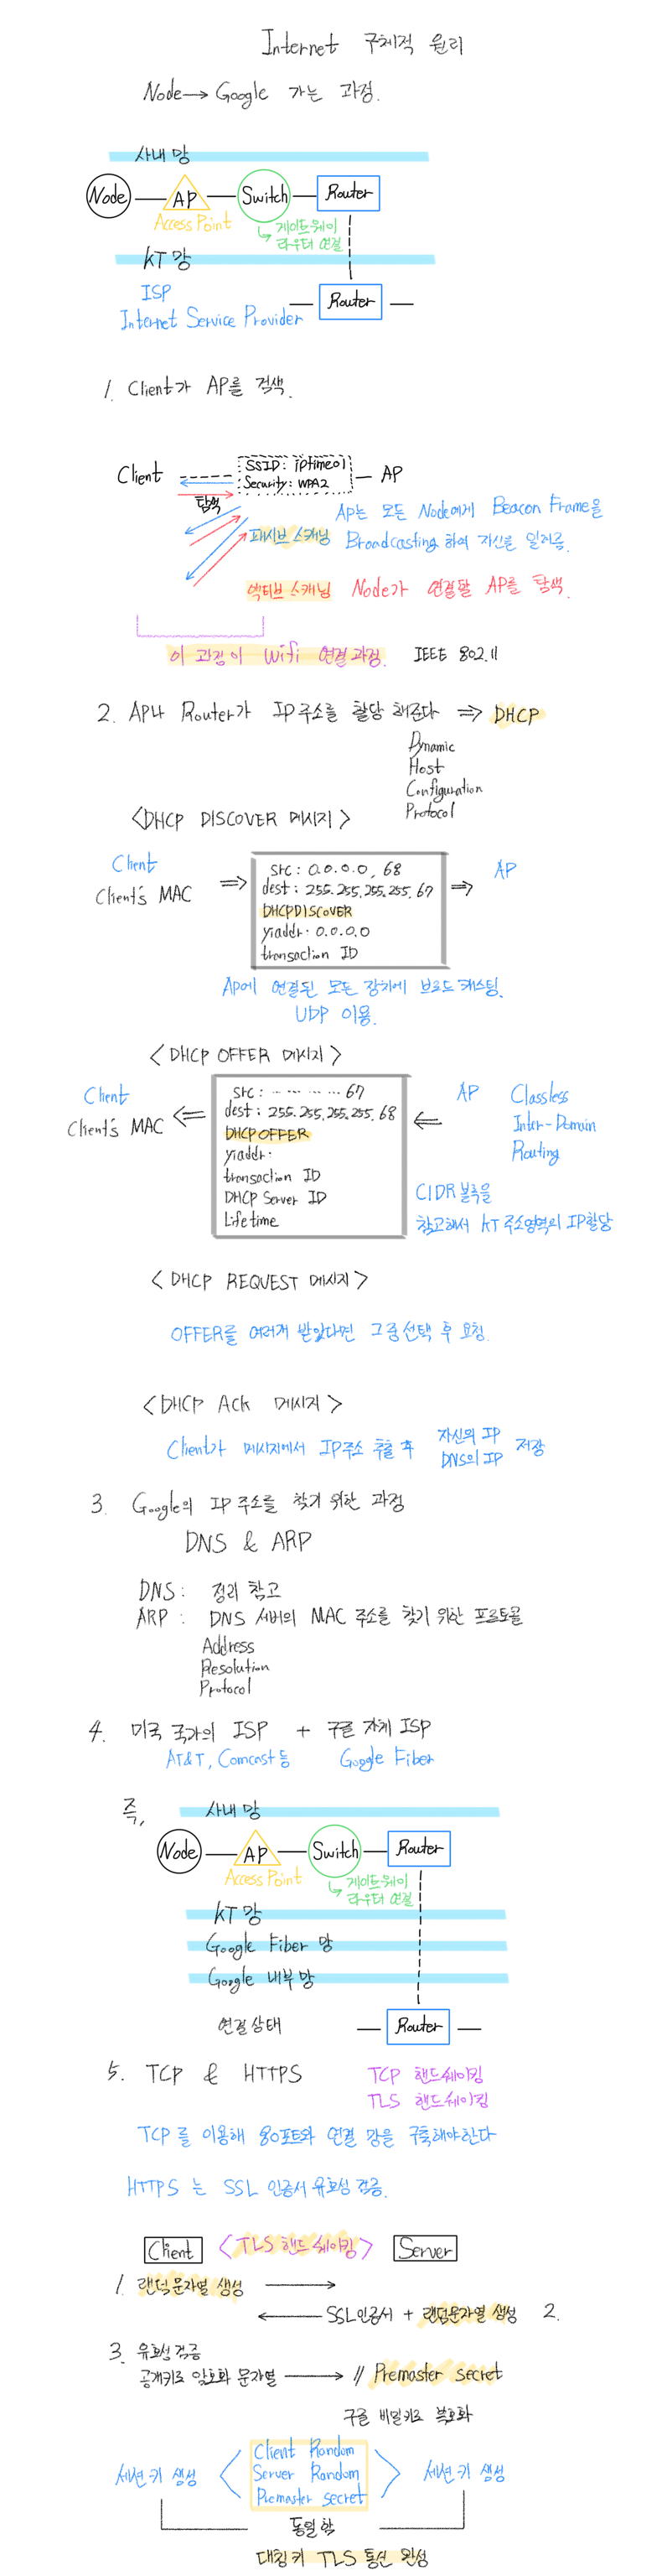 Internet 구체적 원리
Node → Google 가는 과정.
사내망
Node
AP
Switch
Router
Access Point
게이트웨이
라우터 연결
KT 망
ISP
Internet Service Provider
Router
1. Client가 AP를 검색.
Client
SSID: iptime01
Security: WPA2
AP
탐색
AP는 모든 Node에게 Beacon Frame을
패시브 스캐닝
Broadcasting 하여 자신을 알려줌.
액티브 스캐닝
Node가 연결할 AP를 탐색.
이 과정이 Wifi 연결과정.
IEEE 802.11
2. AP나 Router가 IP주소를 할당 해준다 ⇒ DHCP
Dynamic
Host
Configuration
Protocol
<DHCP DISCOVER 메시지>
Client
Client's MAC
src: 0.0.0.0, 68
dest: 255.255.255.255, 67
DHCPDISCOVER
yiaddr: 0.0.0.0
transaction ID
AP
AP에 연결된 모든 장치에 브로드캐스팅.
UDP 이용.
<DHCP OFFER 메시지>
Client
Client's MAC
src: ........ 67
dest: 255.255.255.255, 68
DHCPOFFER
yiaddr:
transaction ID
DHCP Server ID
Lifetime
AP
Classless
Inter-Domain
Routing
CIDR 블록을
참고해서 KT 주소영역의 IP할당
<DHCP REQUEST 메시지>
OFFER를 여러개 받았다면 그중 선택 후 요청.
<DHCP Ack 메시지>
Client가 메시지에서 IP주소 추출 후
자신의 IP
DNS의 IP
저장
3. Google의 IP 주소를 찾기 위한 과정
DNS & ARP
DNS: 정리 참고
ARP: DNS 서버의 MAC 주소를 찾기 위한 프로토콜
Address
Resolution
Protocol
4. 미국 국가의 ISP + 구글 자체 ISP
AT&T, Comcast 등
Google Fiber
즉,
사내망
Node
AP
Switch
Router
Access Point
게이트웨이
라우터 연결
KT 망
Google Fiber 망
Google 내부망
연결상태
Router
5. TCP & HTTPS
TCP 핸드쉐이킹
TLS 핸드쉐이킹
TCP를 이용해 80포트와 연결 망을 구축해야한다
HTTPS는 SSL 인증서 유효성 검증.
Client
<TLS 핸드쉐이킹>
Server
1. 랜덤문자열 생성
SSL인증서 + 랜덤문자열 생성 2.
3. 유효성 검증
공개키로 암호화 문자열
// Premaster secret
구글 비밀키로 복호화
세션 키 생성
Client Random
Server Random
Premaster secret
세션키 생성
동일함
대칭키 TLS 통신 완성